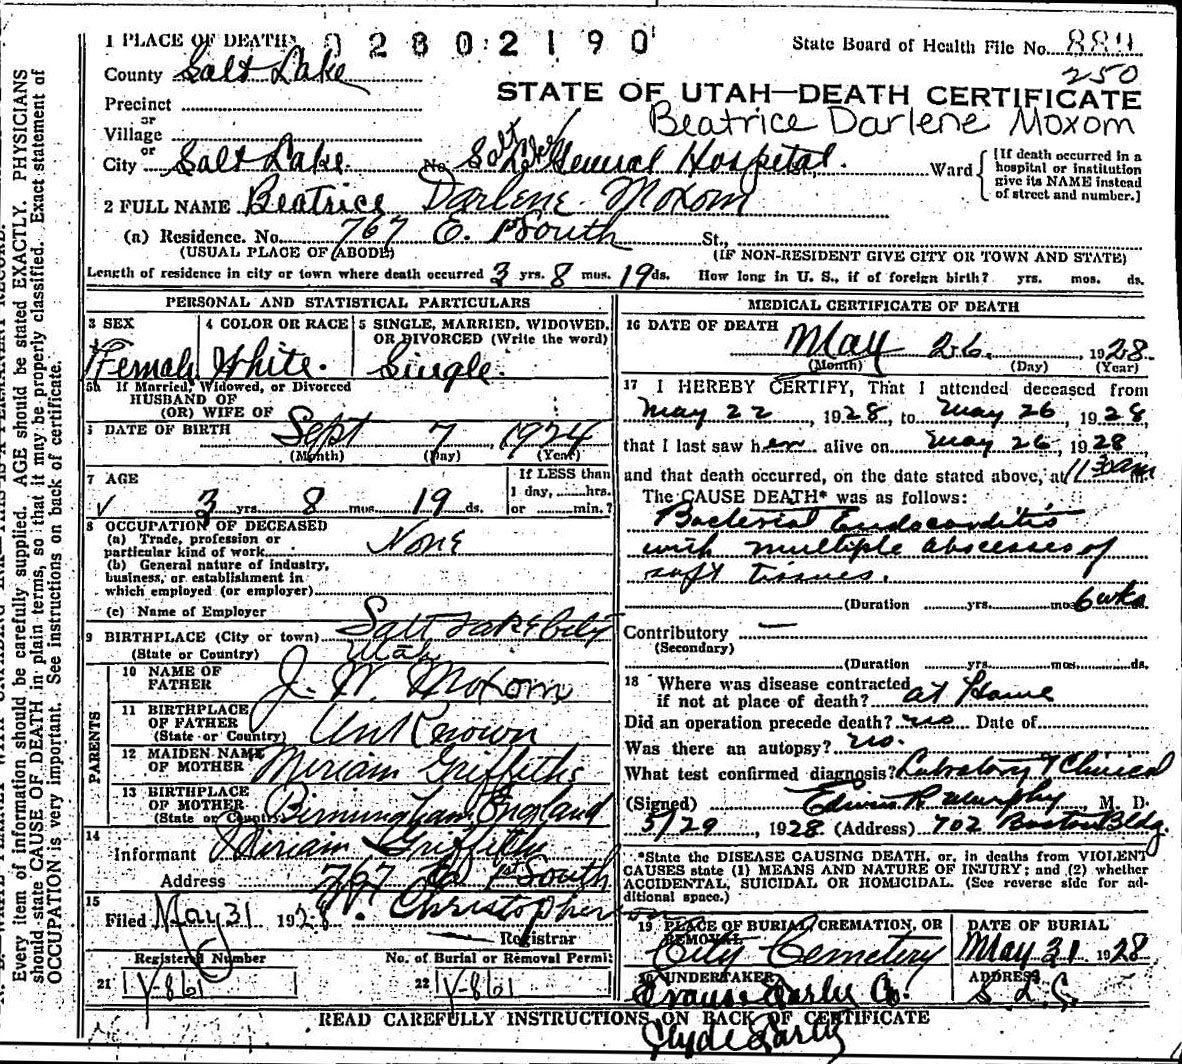 1 PLACE OF DEATH 02802190 State Board of Health File No. 889
County Salt Lake 250
STATE OF UTAH—DEATH CERTIFICATE
Precinct
or
Beatrice Darlene Moxom
Village
or
City Salt Lake No. General Hospital. Ward [If death occurred in a hospital or institution give its NAME instead of street and number.]
2 FULL NAME Beatrice Darlene Moxom
(a) Residence. No. 767 E. 1st South St.,
(USUAL PLACE OF ABODE) (IF NON-RESIDENT GIVE CITY OR TOWN AND STATE)
Length of residence in city or town where death occurred 3 yrs. 8 mos. 19 ds. How long in U. S., if of foreign birth? yrs. mos. ds.
PERSONAL AND STATISTICAL PARTICULARS
3 SEX 4 COLOR OR RACE 5 SINGLE, MARRIED, WIDOWED, OR DIVORCED (Write the word)
Female White. Single.
5a If Married, Widowed, or Divorced
HUSBAND OF
(OR) WIFE OF
6 DATE OF BIRTH Sept 7, 1924
(Month) (Day) (Year)
7 AGE If LESS than
1 day, hrs.
3 yrs. 8 mos. 19 ds. or min.?
8 OCCUPATION OF DECEASED
(a) Trade, profession or
particular kind of work None
(b) General nature of industry,
business, or establishment in
which employed (or employer)
(c) Name of Employer
9 BIRTHPLACE (City or town) Salt Lake City
(State or Country) Utah
PARENTS
10 NAME OF
FATHER J. W. Moxom
11 BIRTHPLACE
OF FATHER
(State or Country) Unknown
12 MAIDEN NAME
OF MOTHER Miriam Griffiths
13 BIRTHPLACE
OF MOTHER
(State or Country) Birmingham, England
14
Informant Miriam Griffiths
Address 767 E. 1st South
15
Filed May 31 1928 Christopherson
Registrar
Registered Number No. of Burial or Removal Permit
21 V-861 22 V-861
MEDICAL CERTIFICATE OF DEATH
16 DATE OF DEATH May 26, 1928
(Month) (Day) (Year)
17 I HEREBY CERTIFY, That I attended deceased from
May 22, 1928, to May 26, 1928,
that I last saw her alive on May 26, 1928
and that death occurred, on the date stated above, at 11 30 am m.
The CAUSE DEATH* was as follows:
Bacterial Endocarditis
with multiple abscesses of
soft tissues.
(Duration yrs. mos 6 wks
Contributory —
(Secondary)
(Duration yrs. mos. ds.
18 Where was disease contracted
if not at place of death? at Home
Did an operation precede death? no Date of
Was there an autopsy? no.
What test confirmed diagnosis? Labratory & Clinical
(Signed) Edwin R. Murphy, M. D.
5/29, 1928 (Address) 702 Boston Bldg.
*State the DISEASE CAUSING DEATH, or, in deaths from VIOLENT
CAUSES state (1) MEANS AND NATURE OF INJURY; and (2) whether
ACCIDENTAL, SUICIDAL OR HOMICIDAL. (See reverse side for ad-
ditional space.)
19 PLACE OF BURIAL, CREMATION, OR REMOVAL DATE OF BURIAL
City Cemetery May 31 1928
20 UNDERTAKER ADDRESS
Evans & Early Co. S. L. C.
READ CAREFULLY INSTRUCTIONS ON BACK OF CERTIFICATE
Clyde Early
Every item of information should be carefully supplied. AGE should be stated EXACTLY. PHYSICIANS
should state CAUSE OF DEATH in plain terms, so that it may be properly classified. Exact statement of
OCCUPATION is very important. See instructions on back of certificate.